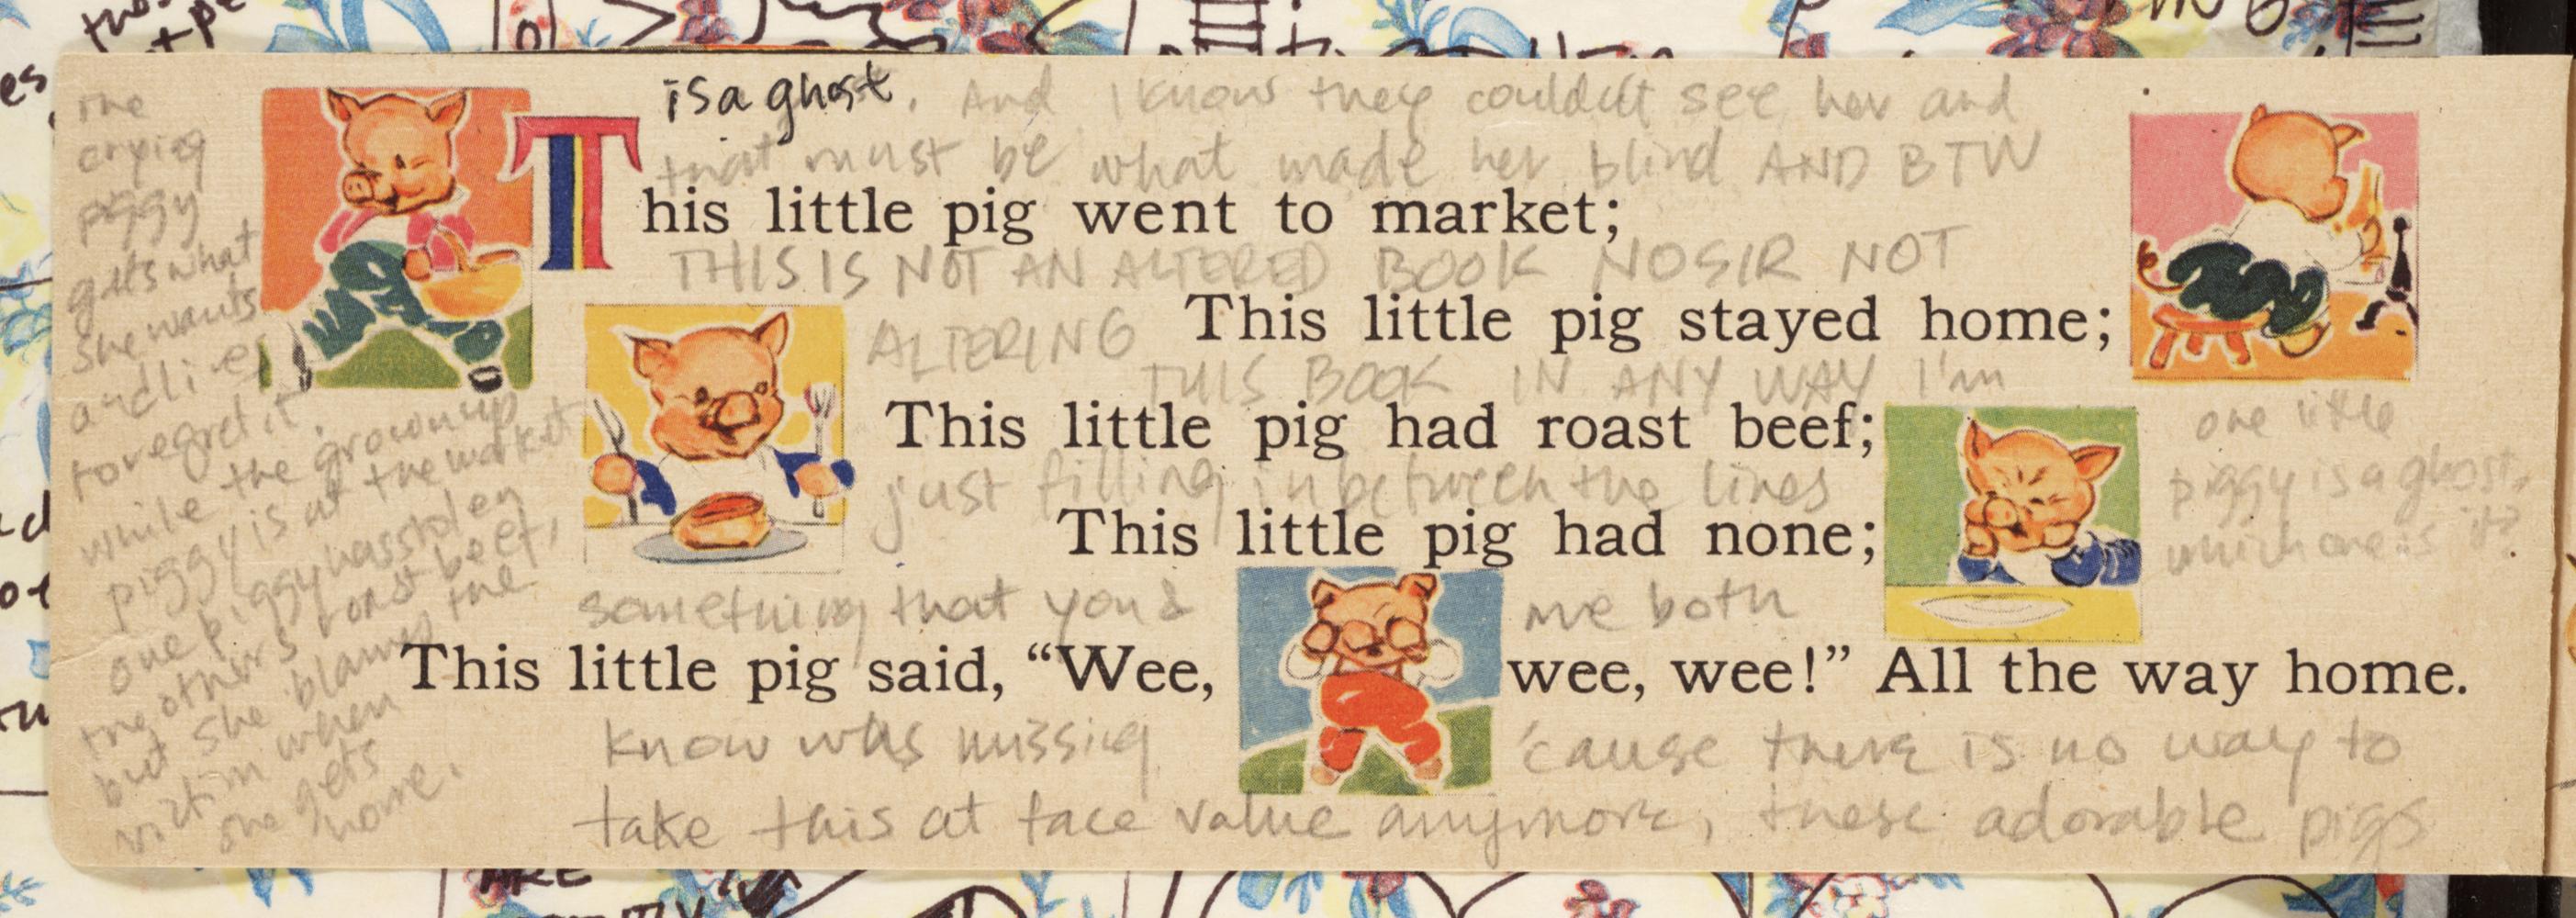 is a ghost. And I know they couldn't see her and
that must be what made her blind AND BTW
This little pig went to market;
THIS IS NOT AN ALTERED BOOK NO SIR NOT
ALTERING
This little pig stayed home;
THIS BOOK IN ANY WAY I'm
This little pig had roast beef;
just filling in between the lines
This little pig had none;
something that you & me both
This little pig said, “Wee, wee, wee!” All the way home.
know was missing 'cause there is no way to
take this at face value anymore, these adorable pigs
the
crying
piggy
gets what
she wants
and lives
to regret it.
while the grown up
piggy is at the market
one piggy has stolen
the others roast beef,
but she blames the
victim when
she gets
home.
one little
piggy is a ghost,
which one is it?